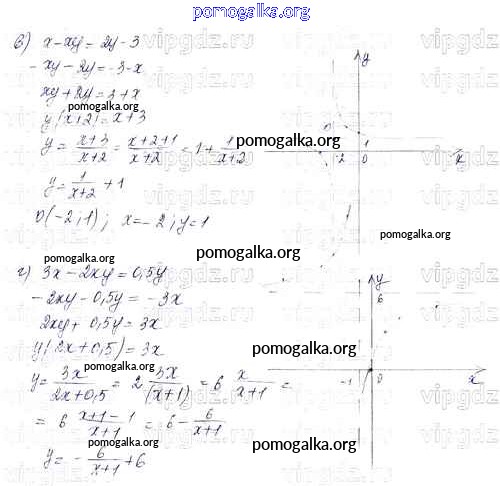 pomogalka.org
в) x-xy = 2y-3
-xy-2y = -3-x
xy+2y = 3+x
pomogalka.org
y(x+2) = x+3
pomogalka.org
y = \frac{x+3}{x+2} = \frac{x+2+1}{x+2} = 1+\frac{1}{x+2}
pomogalka.org
y = \frac{1}{x+2} + 1
O(-2;1); x = -2; y = 1
y
1
-2
0
x
pomogalka.org
pomogalka.org
г) 3x-2xy = 0,5y
-2xy-0,5y = -3x
2xy+0,5y = 3x
y(2x+0,5) = 3x
pomogalka.org
y = \frac{3x}{2x+0,5} = 2 \frac{3x}{(x+1)} = 6 \frac{x}{x+1} =
= 6 \frac{x+1-1}{x+1} = 6-\frac{6}{x+1}
pomogalka.org
y = -\frac{6}{x+1}+6
pomogalka.org
y
6
-1
0
x
vipgdz.ru